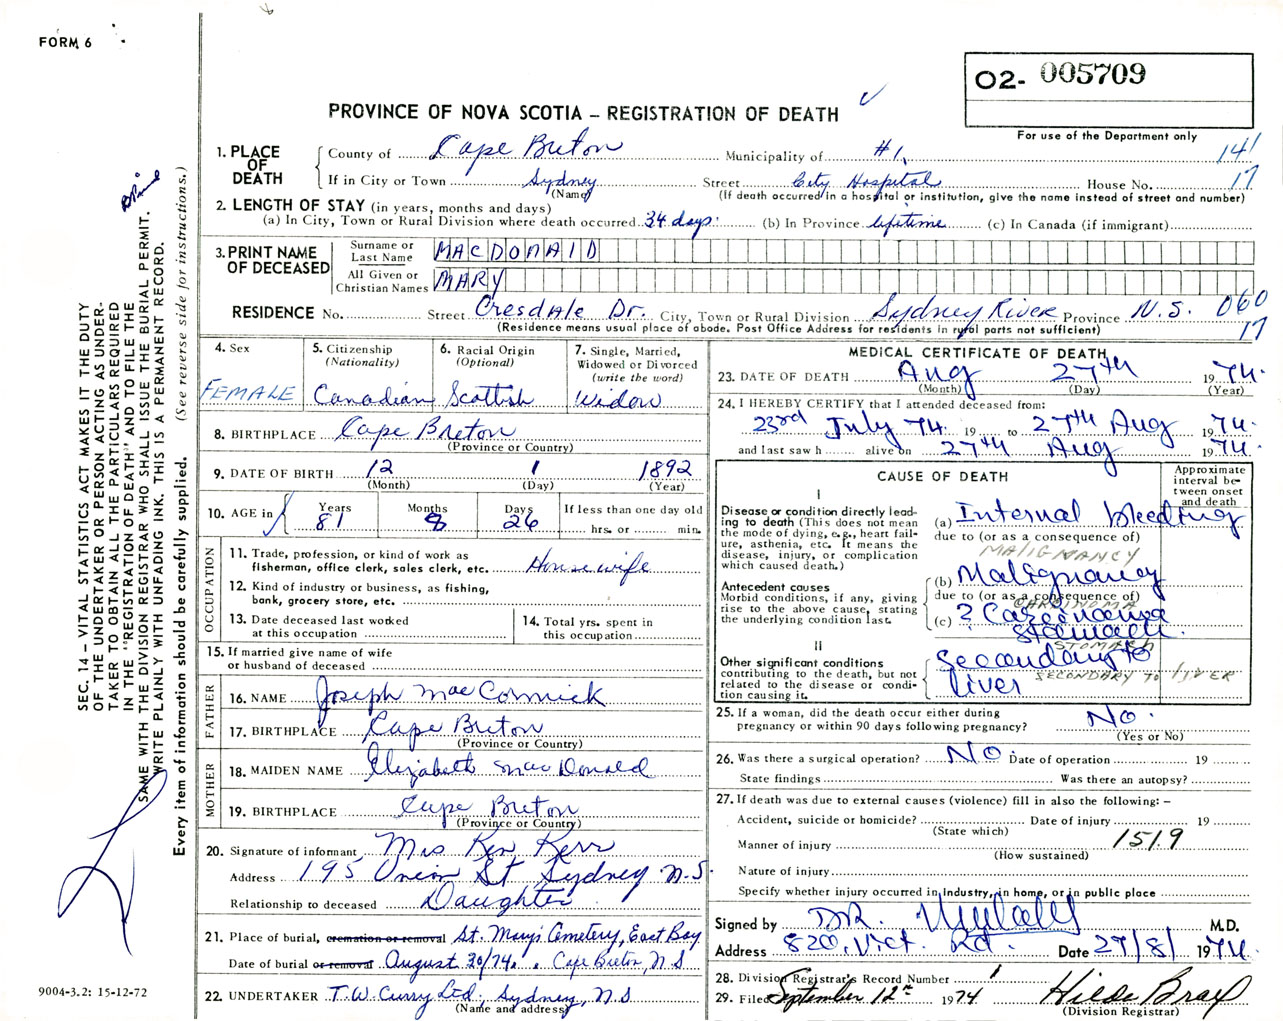 FORM 6
O2- 005709
PROVINCE OF NOVA SCOTIA – REGISTRATION OF DEATH
For use of the Department only
1. PLACE OF DEATH
County of Cape Breton Municipality of #1, 141
If in City or Town Sydney Street City Hospital House No. 17
(Name) (If death occurred in a hospital or institution, give the name instead of street and number)
2. LENGTH OF STAY (in years, months and days)
(a) In City, Town or Rural Division where death occurred 34 days. (b) In Province lifetime (c) In Canada (if immigrant)
3. PRINT NAME OF DECEASED
Surname or Last Name MACDONALD
All Given or Christian Names MARY
RESIDENCE No. Street Cresdale Dr. City, Town or Rural Division Sydney River Province N.S. 060
(Residence means usual place of abode. Post Office Address for residents in rural parts not sufficient) 17
4. Sex FEMALE
5. Citizenship (Nationality) Canadian
6. Racial Origin (Optional) Scottish
7. Single, Married, Widowed or Divorced (write the word) Widow
8. BIRTHPLACE Cape Breton
(Province or Country)
9. DATE OF BIRTH 12 1 1892
(Month) (Day) (Year)
10. AGE in Years 81 Months 8 Days 26 If less than one day old hrs. or min.
OCCUPATION
11. Trade, profession, or kind of work as fisherman, office clerk, sales clerk, etc. Housewife
12. Kind of industry or business, as fishing, bank, grocery store, etc.
13. Date deceased last worked at this occupation
14. Total yrs. spent in this occupation
15. If married give name of wife or husband of deceased
FATHER
16. NAME Joseph MacCormick
17. BIRTHPLACE Cape Breton
(Province or Country)
MOTHER
18. MAIDEN NAME Elizabeth MacDonald
19. BIRTHPLACE Cape Breton
(Province or Country)
20. Signature of informant Mrs Ken Kerr
Address 195 Union St Sydney N.S.
Relationship to deceased Daughter
21. Place of burial, cremation or removal St. Mary's Cemetery, East Bay
Date of burial or removal August 30/74. Cape Breton, N S
22. UNDERTAKER T.W. Curry Ltd, Sydney, N S
(Name and address)
MEDICAL CERTIFICATE OF DEATH
23. DATE OF DEATH Aug 27th 1974.
(Month) (Day) (Year)
24. I HEREBY CERTIFY that I attended deceased from:
23rd July 74. 19 to 27th Aug 1974.
and last saw h alive on 27th Aug 1974.
CAUSE OF DEATH
Approximate interval between onset and death
I
Disease or condition directly leading to death (This does not mean the mode of dying, e.g., heart failure, asthenia, etc. It means the disease, injury, or complication which caused death.)
(a) Internal bleeding
due to (or as a consequence of)
MALIGNANCY
Antecedent causes
Morbid conditions, if any, giving rise to the above cause, stating the underlying condition last.
(b) Malignancy
due to (or as a consequence of)
CARCINOMA
(c) ? Carcinoma stomach.
STOMACH
II
Other significant conditions contributing to the death, but not related to the disease or condition causing it.
Secondary to liver
SECONDARY TO LIVER
25. If a woman, did the death occur either during pregnancy or within 90 days following pregnancy? No.
(Yes or No)
26. Was there a surgical operation? NO Date of operation 19
State findings Was there an autopsy?
27. If death was due to external causes (violence) fill in also the following: –
Accident, suicide or homicide? Date of injury 19
(State which)
Manner of injury 151.9
(How sustained)
Nature of injury
Specify whether injury occurred in industry, in home, or in public place
Signed by DR. M.D.
Address 820, Vict. Rd. Date 27/8/1974.
28. Division Registrar's Record Number 1
29. Filed September 12th 1974
(Division Registrar)
SEC. 14 – VITAL STATISTICS ACT MAKES IT THE DUTY
OF THE UNDERTAKER OR PERSON ACTING AS UNDER-
TAKER TO OBTAIN ALL THE PARTICULARS REQUIRED
IN THE "REGISTRATION OF DEATH" AND TO FILE THE
SAME WITH THE DIVISION REGISTRAR WHO SHALL ISSUE THE BURIAL PERMIT.
WRITE PLAINLY WITH UNFADING INK. THIS IS A PERMANENT RECORD.
Every item of information should be carefully supplied. (See reverse side for instructions.)
9004-3.2: 15-12-72